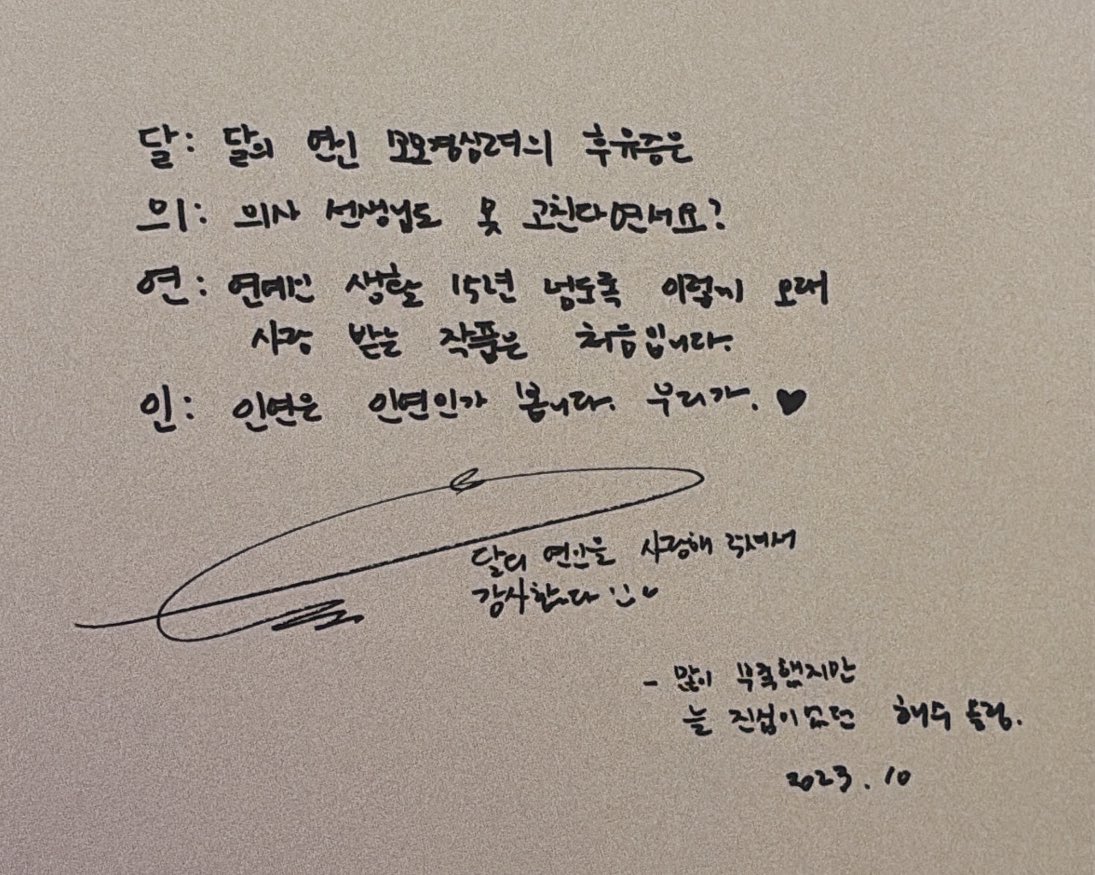 달: 달의 연인 보보경심려의 후유증은
의: 의사 선생님도 못 고친다면서요?
연: 연예인 생활 15년 넘도록 이렇게 오래
사랑 받는 작품은 처음입니다.
인: 인연은 인연인가 봅니다. 우리가. ♥
달의 연인을 사랑해 주셔서
감사합니다
- 많이 부족했지만
늘 진심이었던 해수 드림.
2023. 10